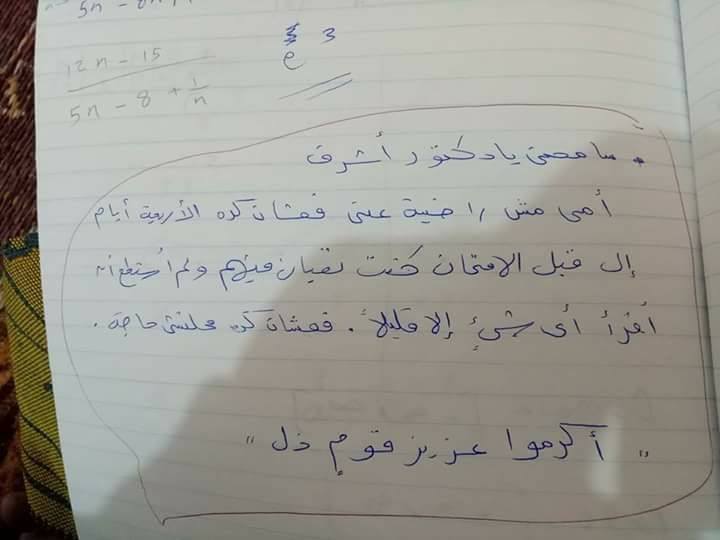 12n - 15
5n - 8 + 1/n
3
سامحنى يا دكتور أشرف
أمى مش راضية عنى فعشان كده الأربعة أيام
إلى قبل الامتحان كنت تعبان فيهم ولم أستطع أن
أقرأ أى شيءٍ إلا قليلاً. فعشان كده محلتش حاجة.
" أكرموا عزيز قومٍ ذل "